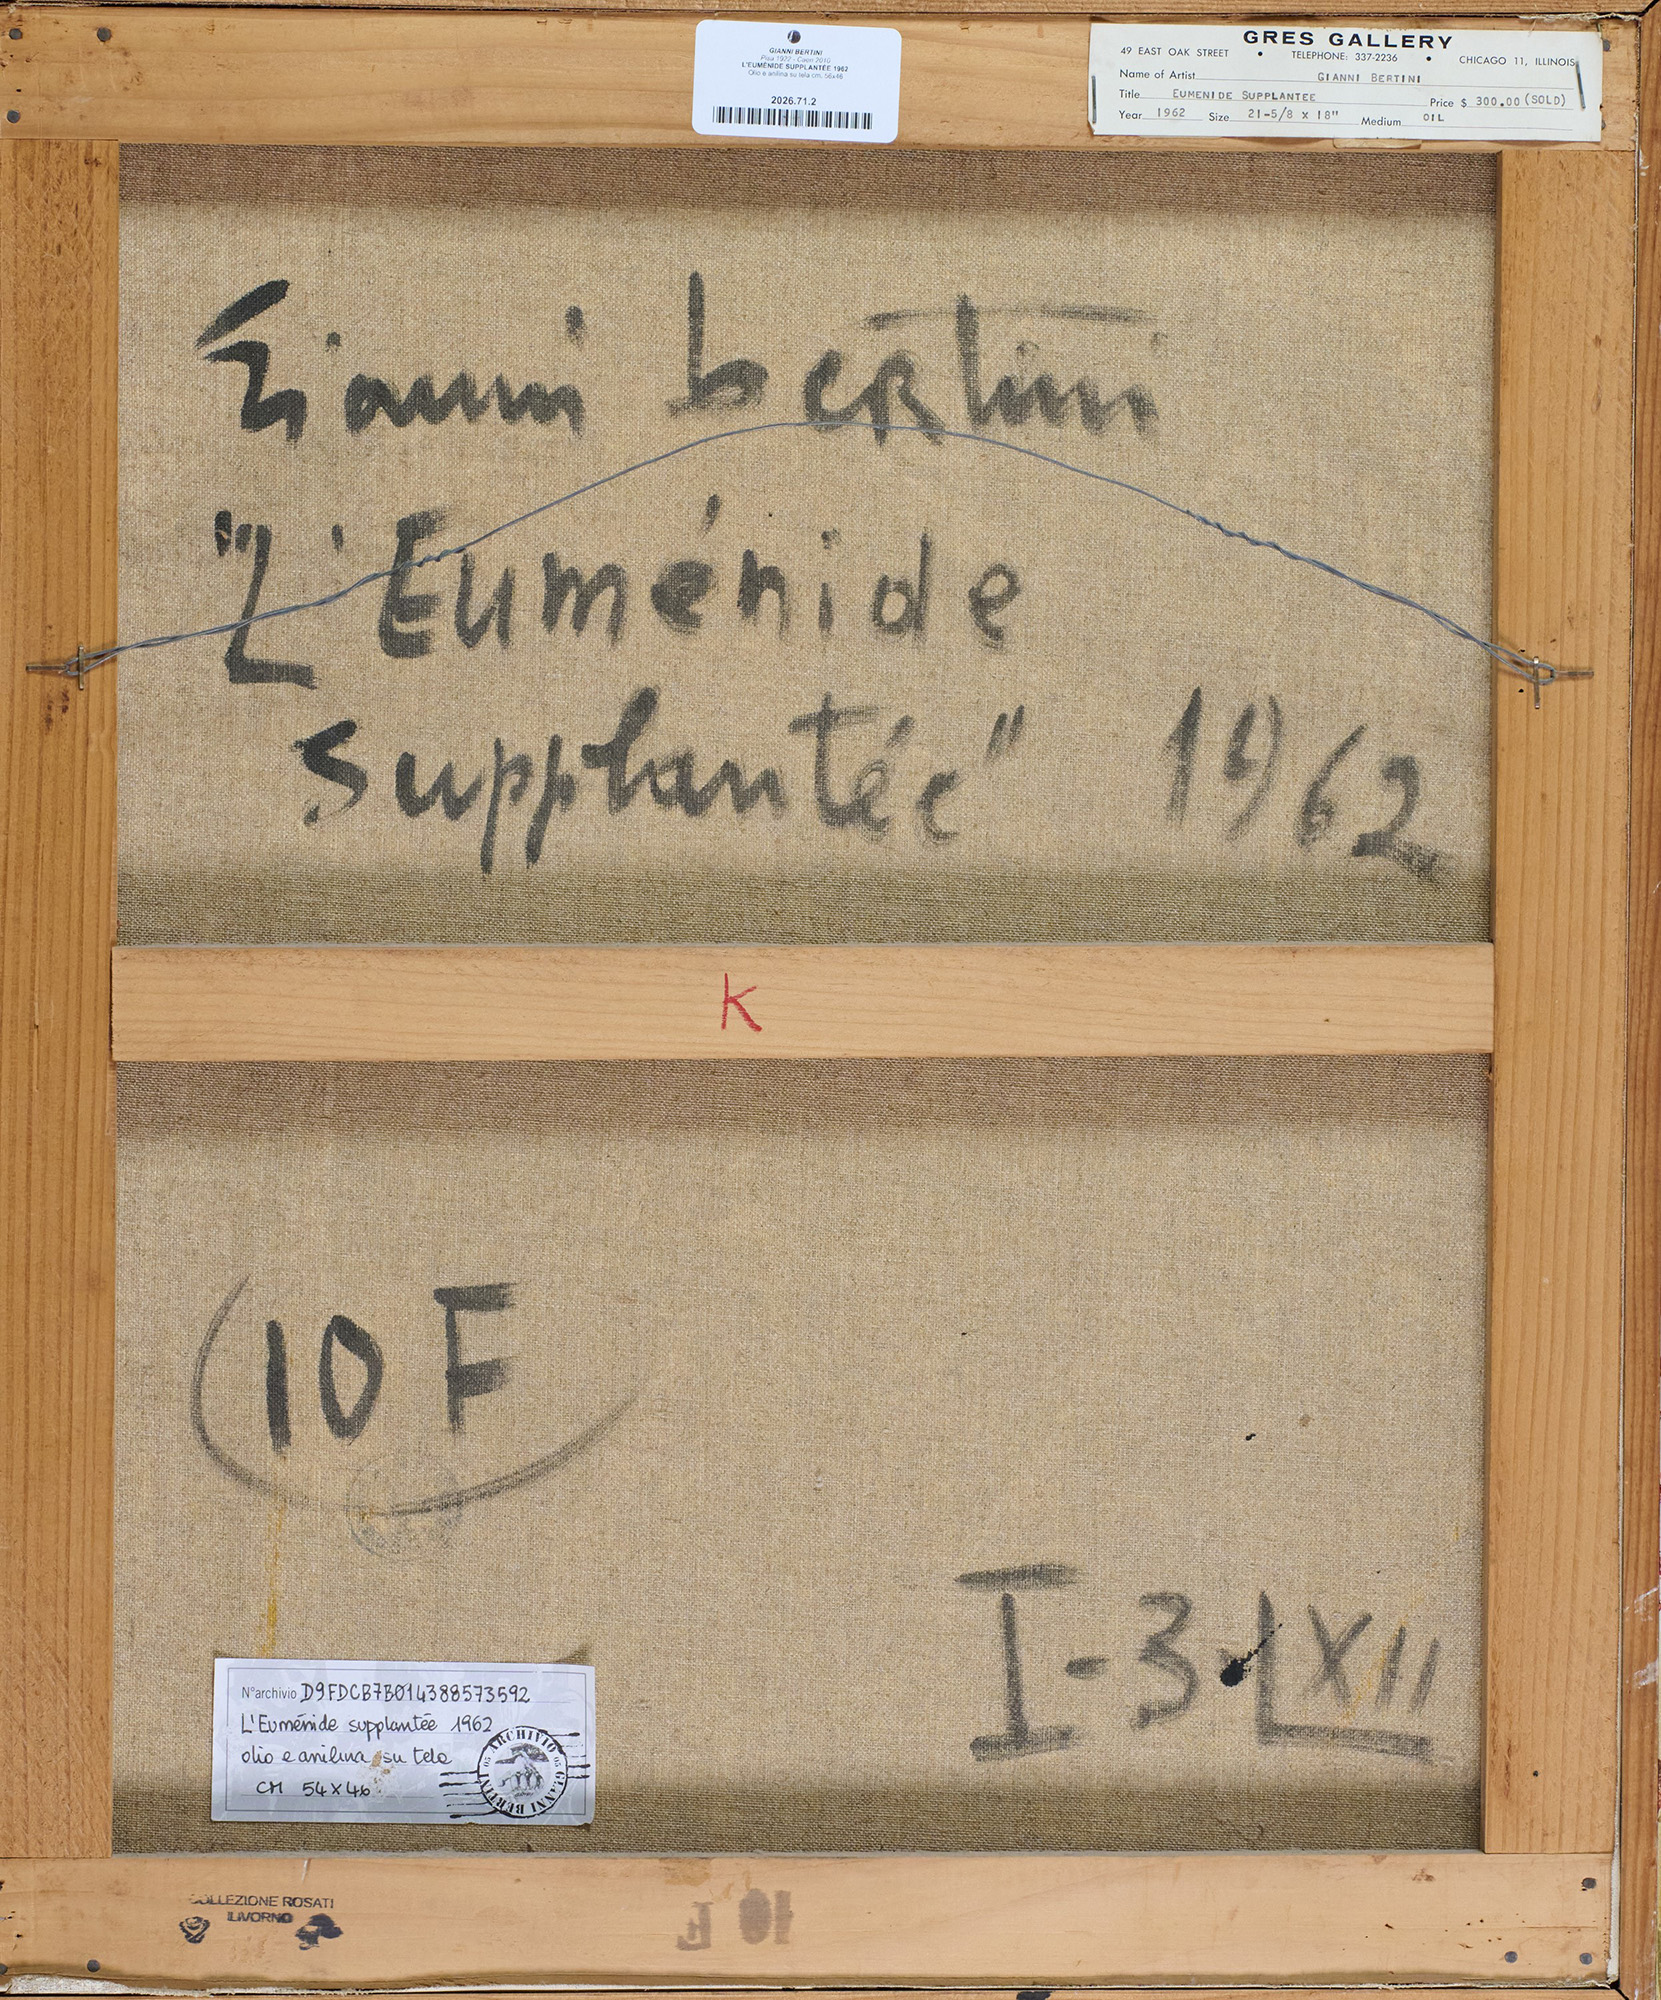 GIANNI BERTINI
Pisa 1922 - Caen 2010
L'EUMÉNIDE SUPPLANTÉE 1962
Olio e anilina su tela cm. 56x46
2026.71.2
GRES GALLERY
49 EAST OAK STREET • TELEPHONE: 337-2236 • CHICAGO 11, ILLINOIS
Name of Artist GIANNI BERTINI
Title EUMENIDE SUPPLANTEE Price $ 300.00 (SOLD)
Year 1962 Size 21-5/8 x 18" Medium OIL
Gianni bertini
"L'Euménide
supplantée" 1962
K
10 F
I-3-LXII
N°archivio D9FDCB7B014388573592
L'Euménide supplantée 1962
olio e anilina su tela
CM 54x46
ARCHIVIO GIANNI BERTINI
COLLEZIONE ROSATI
LIVORNO